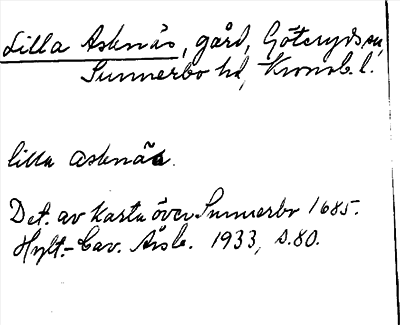 Lilla Asknäs, gård, Göteryds sn,
Sunnerbo hd, Kronob. l.
lilla asknäs.
Det. av karta över Sunnerbo 1685.
Hylt.-Cav. Årsb. 1933, s.80.